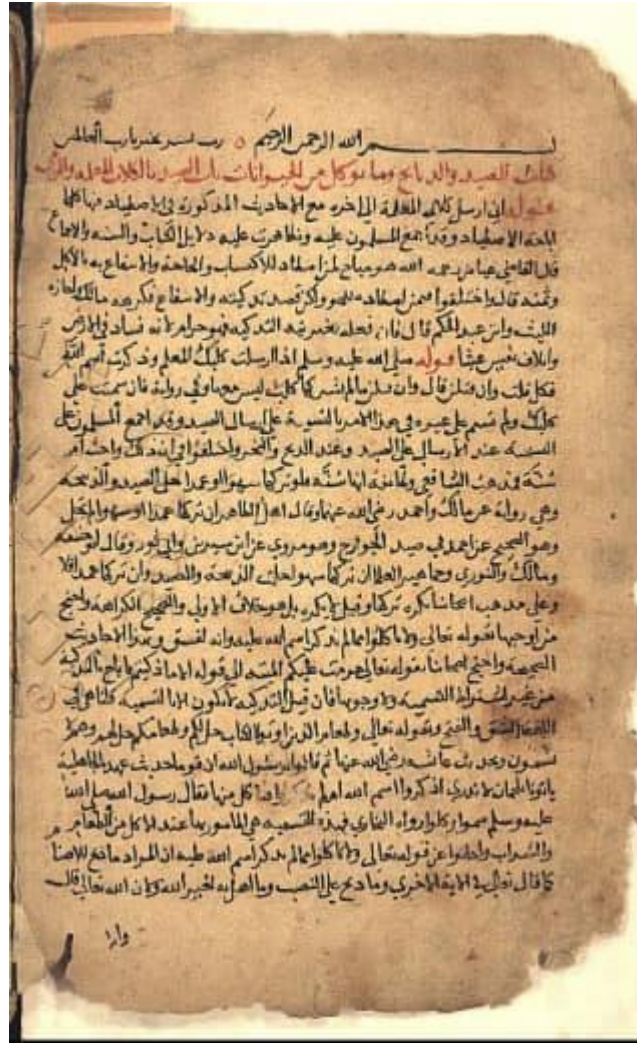 بسم الله الرحمن الرحيم ٥ رب يسر بخير يا رب العالمين
كتاب الصيد والذبايح وما يوكل من الحيوانات باب الصيد بالكلاب المعلمة والرمي
قوله اني ارسل كلابي المعلمة الى اخره مع الاحاديث المذكورة في الاصطياد فيها كلها
اباحة الاصطياد وقد اجمع المسلمون عليه وتظاهرت عليه دلايل الكتاب والسنة والاجماع
قال القاضي عياض رحمه الله هو مباح لمن اصطاد للاكتساب والحاجة والانتفاع به بالاكل
وثمنه قال واختلفوا فيمن اصطاد للهو ولكن قصد تذكيته والانتفاع فكرهه مالك واجازه
الليث وابن عبد الحكم قال فان فعله بغير نية التذكية فهو حرام لانه فساد في الارض
واتلاف نفس عبثا قوله صلى الله عليه وسلم اذا ارسلت كلبك المعلم وذكرت اسم الله
فكل قلت وان قتلن قال وان قتلن مالم يشركها كلب ليس معها وفي رواية فان سميت على
كلبك ولم تسم على غيره في هذا الامر بالتسمية على ارسال الصيد وقد اجمع المسلمون على
التسمية عند الارسال على الصيد وعند الذبح والنحر واختلفوا في ان ذلك واجب ام
سنة فمذهب الشافعي وطايفة انها سنة فلو تركها سهوا او عمدا حل الصيد والذبيحة
وهي رواية عن مالك واحمد رضي الله عنهما وقال اهل الظاهر ان تركها عمدا او سهوا لم يحل
وهو الصحيح عن احمد في صيد الجوارح وهو مروي عن ابن سيرين وابي ثور وقال ابو حنيفة
ومالك والثوري وجماهير العلما ان تركها سهوا حلت الذبيحة والصيد وان تركها عمدا فلا
وعلى مذهب اصحابنا يكره تركها وقيل لا يكره بل هو خلاف الاولى والصحيح الكراهة واحتج
من اوجبها بقوله تعالى ولا تاكلوا مما لم يذكر اسم الله عليه وانه لفسق وبهذه الاحاديث
الصحيحة واحتج اصحابنا بقوله تعالى حرمت عليكم الميتة الى قوله الا ما ذكيتم فاباح بالتذكية
من غير اشتراط التسمية ولا وجوبها فان قيل التذكية لا تكون الا بالتسمية قلنا هي في
اللغة الشق والفتح وبقوله تعالى وطعام الذين اوتوا الكتاب حل لكم وطعامكم حل لهم وهم لا
يسمون وبحديث عائشة رضي الله عنها انهم قالوا يا رسول الله ان قوما حديث عهد بالجاهلية
ياتونا بلحمان لا ندري اذكروا اسم الله ام لم افناكل منها فقال رسول الله صلى الله
عليه وسلم سموا وكلوا رواه البخاري فهذه التسمية هي المامور بها عند الاكل من الطعام
والشراب واجابوا عن قوله تعالى ولا تاكلوا مما لم يذكر اسم الله عليه ان المراد ما ذبح للاصنام
كما قال تعالى في الاية الاخرى وما ذبح على النصب وما اهل به لغير الله ولان الله تعالى قال
وانه